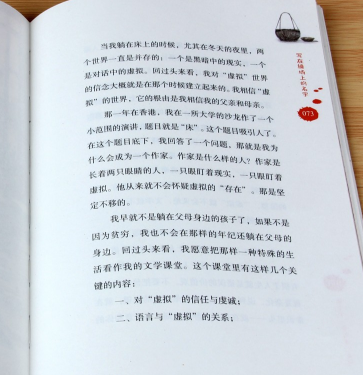 当我躺在床上的时候，尤其在冬天的夜里，两
个世界一直是并存的：一个是黑暗中的现实，一个
是对话中的虚拟。回过头来看，我对“虚拟”世界
的信念大概就是在那个时候建立起来的。我相信“虚
拟”的世界，它的根由是我相信我的父亲和母亲。
那一年在香港，我在一所大学的沙龙作了一个
小范围的演讲，题目就是“床”。这个题目吸引人了。
在这个题目底下，我回答了一个问题，那就是我为
什么会成为一个作家。作家是什么样的人？作家是
长着两只眼睛的人，一只眼盯着现实，一只眼盯着
虚拟。他从来就不会怀疑虚拟的“存在”。那是坚
定不移的。
我早就不是躺在父母身边的孩子了，如果不是
因为贫穷，我也不会在那样的年纪还躺在父母的
身边。回过头来看，我愿意把那样一种特殊的生
活看作我的文学课堂。这个课堂里有这样几个关
键的内容：
一、对“虚拟”的信任与虔诚；
二、语言与“虚拟”的关系；
写在墙上的名字
073